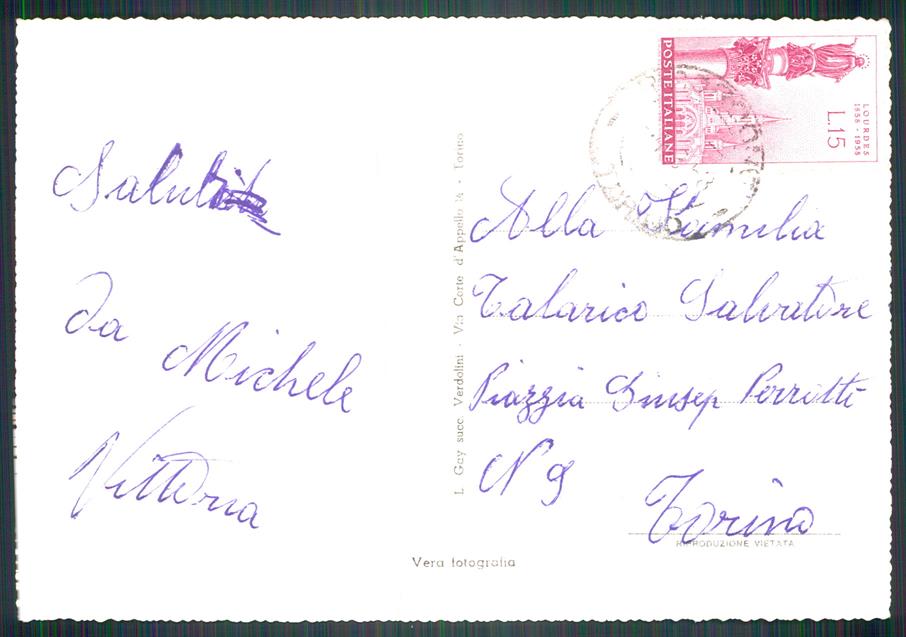 Saluti
Da Michele
Vittoria
L. Gay succ. Verdolini - Via Corte d'Appello - Torino
POSTE ITALIANE
LOURDES
1858 • 1958
L.15
Alla Familia
Talarico Salvatore
Piazzia Giusep Perrotti
N 9
Torino
RIPRODUZIONE VIETATA
Vera fotografia